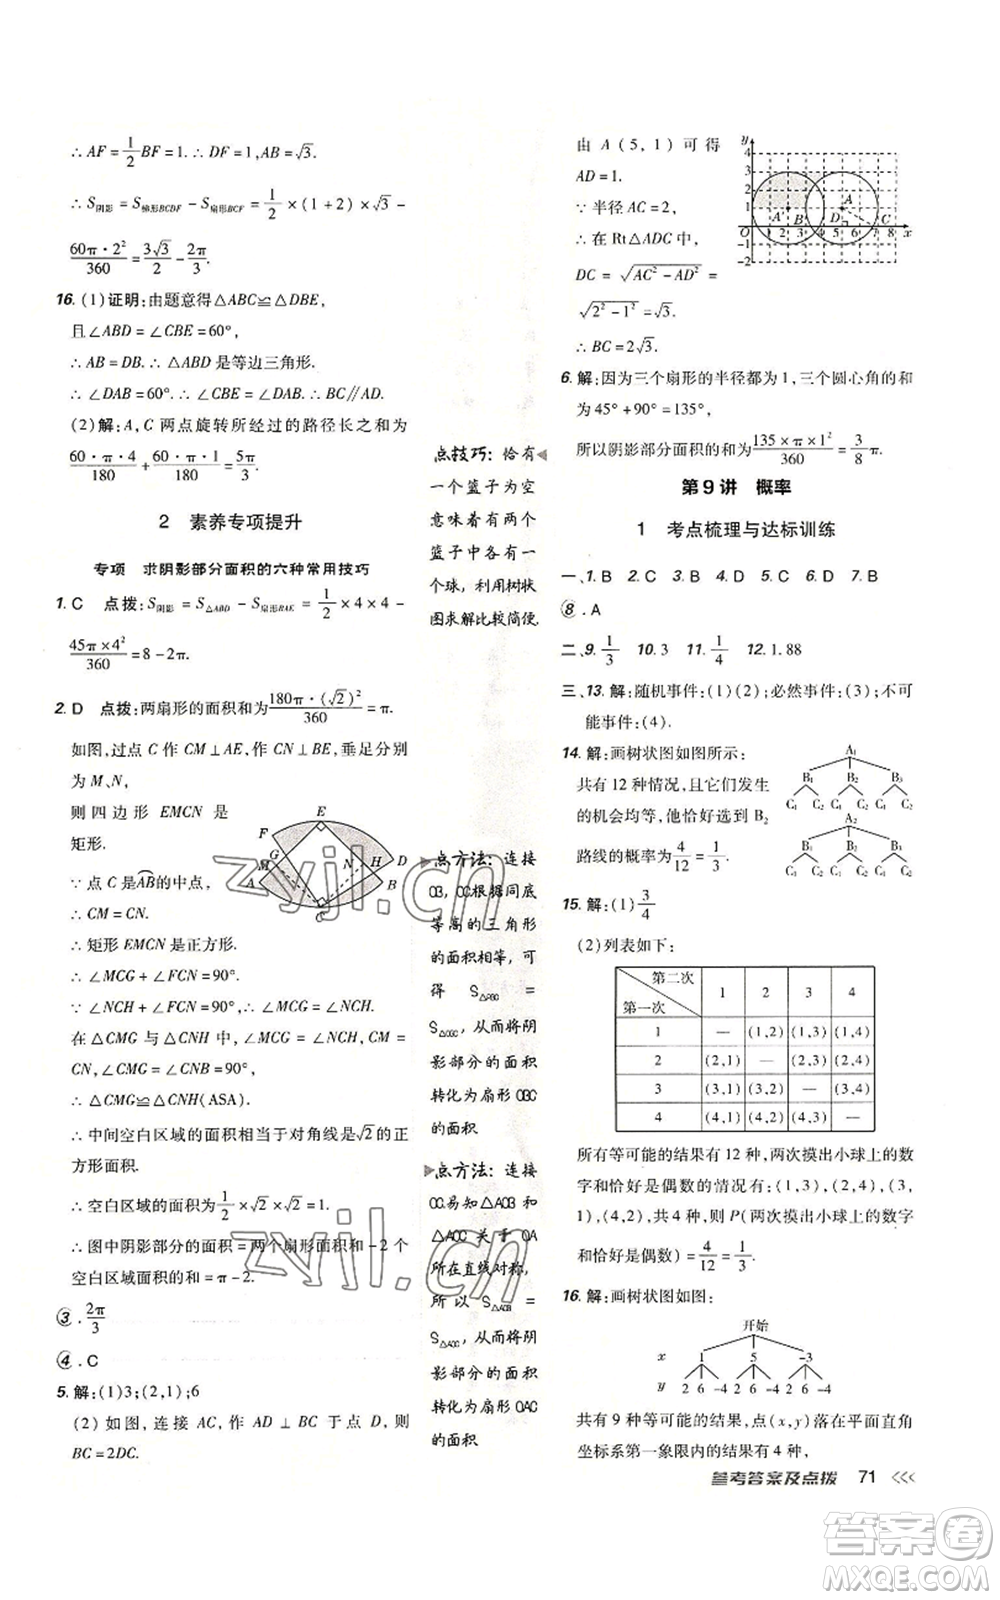 ∴ AF = 1/2 BF = 1. ∴ DF = 1, AB = √3.
∴ S阴影 = S梯形BCDF − S扇形BCF = 1/2 × (1 + 2) × √3 −
60π · 2²/360 = 3√3/2 − 2π/3.
16. (1) 证明: 由题意得△ABC≌△DBE,
且∠ABD = ∠CBE = 60°,
∴ AB = DB. ∴ △ABD 是等边三角形.
∴ ∠DAB = 60° = ∠CBE = 60°, ∴ BC∥AD.
(2) 解: A, C 两点旋转所经过的路径长之和为
60 · π · 4/180 + 60 · π · 1/180 = 5π/3.
2 素养专项提升
专项 求阴影部分面积的六种常用技巧
1. C 点拨: S阴影 = S△ABD − S扇形BAE = 1/2 × 4 × 4 −
45π × 4²/360 = 8 − 2π.
2. D 点拨: 两扇形的面积和为 180π · (√2)²/360 = π.
如图, 过点 C 作 CM⊥AE, 作 CN⊥BE, 垂足分别
为 M、N,
则四边形 EMCN 是
矩形.
∵ 点 C 是AB的中点,
∴ CM = CN.
∴ 矩形 EMCN 是正方形.
∴ ∠MCG + ∠FCN = 90°.
∵ ∠NCH + ∠FCN = 90°, ∴ ∠MCG = ∠NCH.
在△CMG 与△CNH 中, ∠MCG = ∠NCH, CM =
CN, ∠CMG = ∠CNH = 90°,
∴ △CMG≌△CNH(ASA).
∴ 中间空白区域的面积相当于对角线是√2的正
方形面积.
∴ 空白区域的面积为 1/2 × √2 × √2 = 1.
∴ 图中阴影部分的面积 = 两个扇形面积和 − 2 个
空白区域面积的和 = π − 2.
③. 2π/3
④. C
5. 解: (1)3; (2,1); 6
(2) 如图, 连接 AC, 作 AD⊥BC 于点 D, 则
BC = 2DC.
F E D M G N H A B C
点技巧: 恰有
一个篮子为空
意味着有两个
篮子中各有一
个球, 利用树状
图求解比较简便.
点方法: 连接
OB, OC根据同底
等高的三角形
的面积相等, 可
得 S△PBC =
S△OBC, 从而将阴
影部分的面积
转化为扇形 OBC
的面积
点方法: 连接
OC易知△AOB和
△AOC 关于 OA
所在直线对称,
所以 S△AOB =
S△AOC, 从而将阴
影部分的面积
转化为扇形 OAC
的面积
由 A (5, 1) 可得
AD = 1.
∵ 半径 AC = 2,
∴ 在 Rt△ADC 中,
DC = √(AC² − AD²) =
√(2² − 1²) = √3.
∴ BC = 2√3.
y 4 3 2 1 O −1 −2 A′ B D A C 1 2 3 4 5 6 7 8 x
6. 解: 因为三个扇形的半径都为 1, 三个圆心角的和
为 45° + 90° = 135°,
所以阴影部分面积的和为 135 × π × 1²/360 = 3/8 π.
第 9 讲 概率
1 考点梳理与达标训练
一、1. B 2. C 3. A 4. D 5. C 6. D 7. B
⑧. A
二、9. 1/3 10. 3 11. 1/4 12. 1. 88
三、13. 解: 随机事件: (1)(2); 必然事件: (3); 不可
能事件: (4).
14. 解: 画树状图如图所示:
共有 12 种情况, 且它们发生
的机会均等, 他恰好选到 B₂
路线的概率为 4/12 = 1/3.
A₁
B₁ B₂ B₃
C₁ C₂ C₁ C₂ C₁ C₂
A₂
B₁ B₂ B₃
C₁ C₂ C₁ C₂ C₁ C₂
15. 解: (1) 3/4
(2) 列表如下:
第二次 第一次 1 2 3 4
1 — (1,2) (1,3) (1,4)
2 (2,1) — (2,3) (2,4)
3 (3,1) (3,2) — (3,4)
4 (4,1) (4,2) (4,3) —
所有等可能的结果有 12 种, 两次摸出小球上的数
字和恰好是偶数的情况有: (1,3), (2,4), (3,
1), (4,2), 共 4 种, 则 P(两次摸出小球上的数字
和恰好是偶数) = 4/12 = 1/3.
16. 解: 画树状图如图:
开始
x 1 5 −3
y 2 6 −4 2 6 −4 2 6 −4
共有 9 种等可能的结果, 点 (x, y) 落在平面直角
坐标系第一象限内的结果有 4 种,
参考答案及点拨 71
zyjl.cn
zyjl.cn
答案卷
MXQE.COM